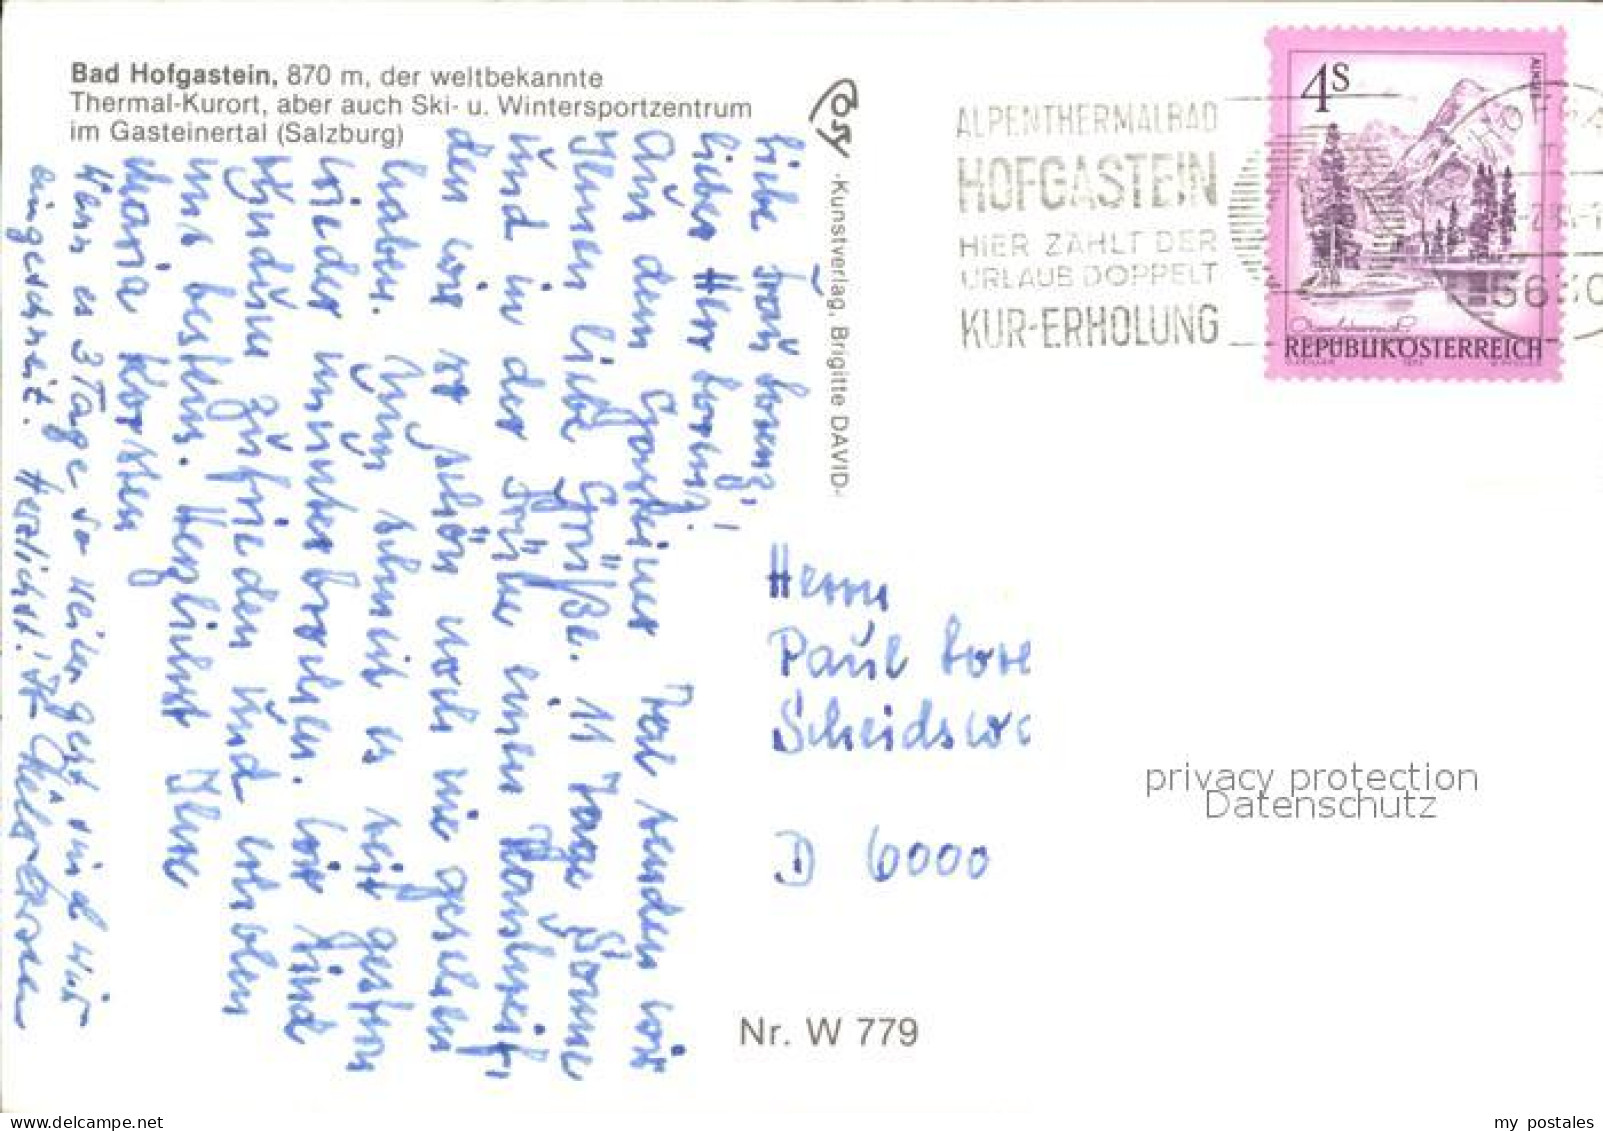 Bad Hofgastein, 870 m, der weltbekannte
Thermal-Kurort, aber auch Ski- u. Wintersportzentrum
im Gasteinertal (Salzburg)
Cosy
-Kunstverlag, Brigitte DAVID-
ALPENTHERMALBAD
HOFGASTEIN
HIER ZÄHLT DER
URLAUB DOPPELT
KUR-ERHOLUNG
4S
ALMSEE
REPUBLIK ÖSTERREICH
5630
Liebe Frau Lorenz,
lieber Herr Lorenz!
Aus dem Gasteiner Tal senden wir
Ihnen liebe Grüße. 11 Tage Sonne
und in der Früh einen Rauhreif,
den wir so schön noch nie gesehen
haben. Nun schneit es seit gestern
wieder ununterbrochen. Wir sind
rundum zufrieden und erholen
uns bestens. Herzlichst Ihre
Maria
Wenn es 3 Tage so weiter geht sind wir
eingeschneit. Herzlichst! Ihr
Herrn
Paul Lore
Scheidswa
D 6000
Nr. W 779
privacy protection
Datenschutz
my postales